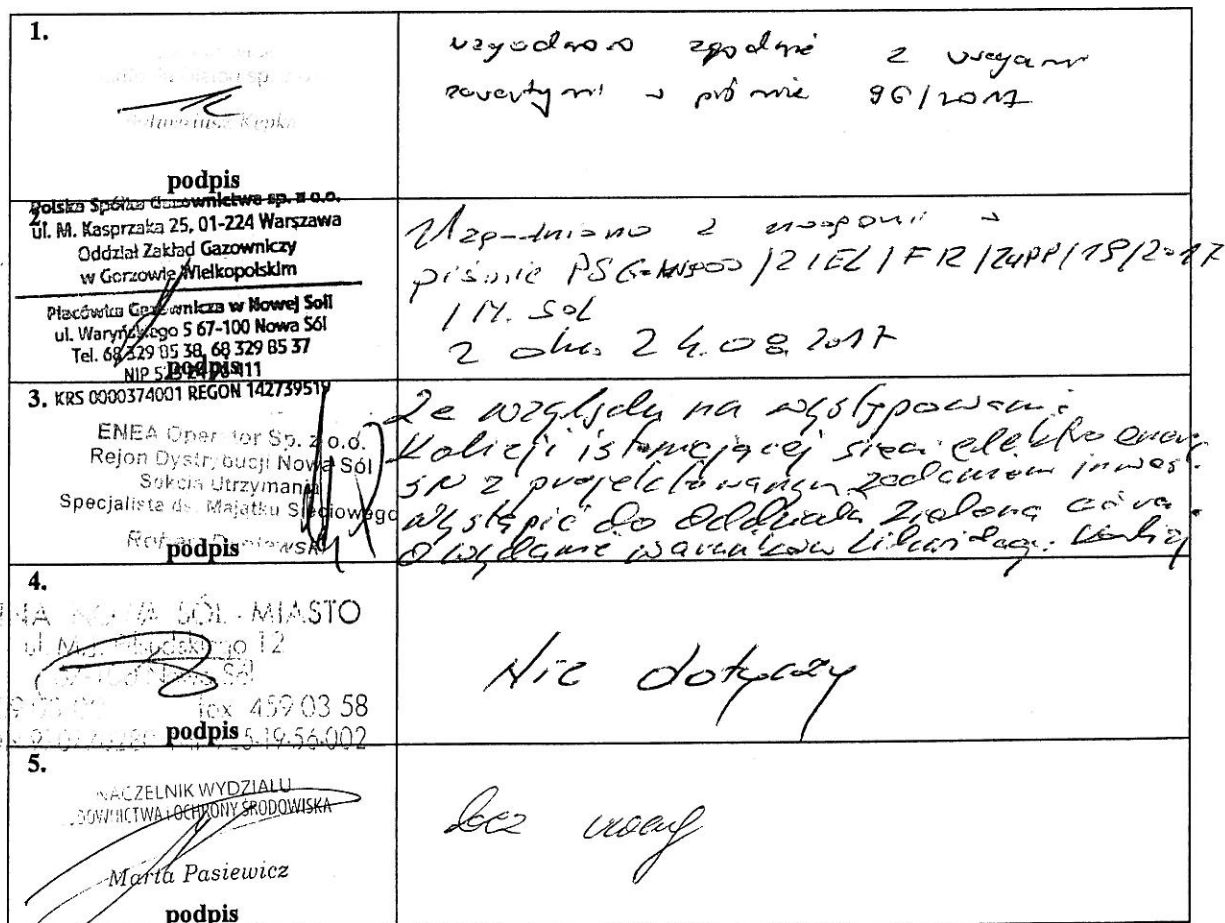 1.
uzgodniono zgodnie z uwagami
zawartymi w piśmie 96/2017
podpis
2.
Polska Spółka Gazownictwa sp. z o.o.
ul. M. Kasprzaka 25, 01-224 Warszawa
Oddział Zakład Gazowniczy
w Gorzowie Wielkopolskim
Placówka Gazownicza w Nowej Soli
ul. Waryńskiego 5 67-100 Nowa Sól
Tel. 68 329 85 38, 68 329 85 37
NIP 411
podpis
KRS 0000374001 REGON 142739519
Uzgodniono z uwagami w
piśmie /ZIEL/FR/ZUPP/19/2017
/N. Sol
z dnia 24.08.2017
3.
ENEA Operator Sp. z o.o.
Rejon Dystrybucji Nowa Sól
Sekcja Utrzymania
Specjalista ds. Majątku Sieciowego
podpis
Ze względu na występowanie
kolizji istniejącej sieci elektroenerg.
SN z projektowanym zadaniem inwes.
wystąpić do Oddziału Zielona Góra
o wydanie warunków likwidacji kolizji
4.
NOWA SÓL - MIASTO
12
fax 459 03 58
podpis
Nie dotyczy
5.
NACZELNIK WYDZIAŁU
OCHRONY ŚRODOWISKA
Marta Pasiewicz
podpis
bez uwag